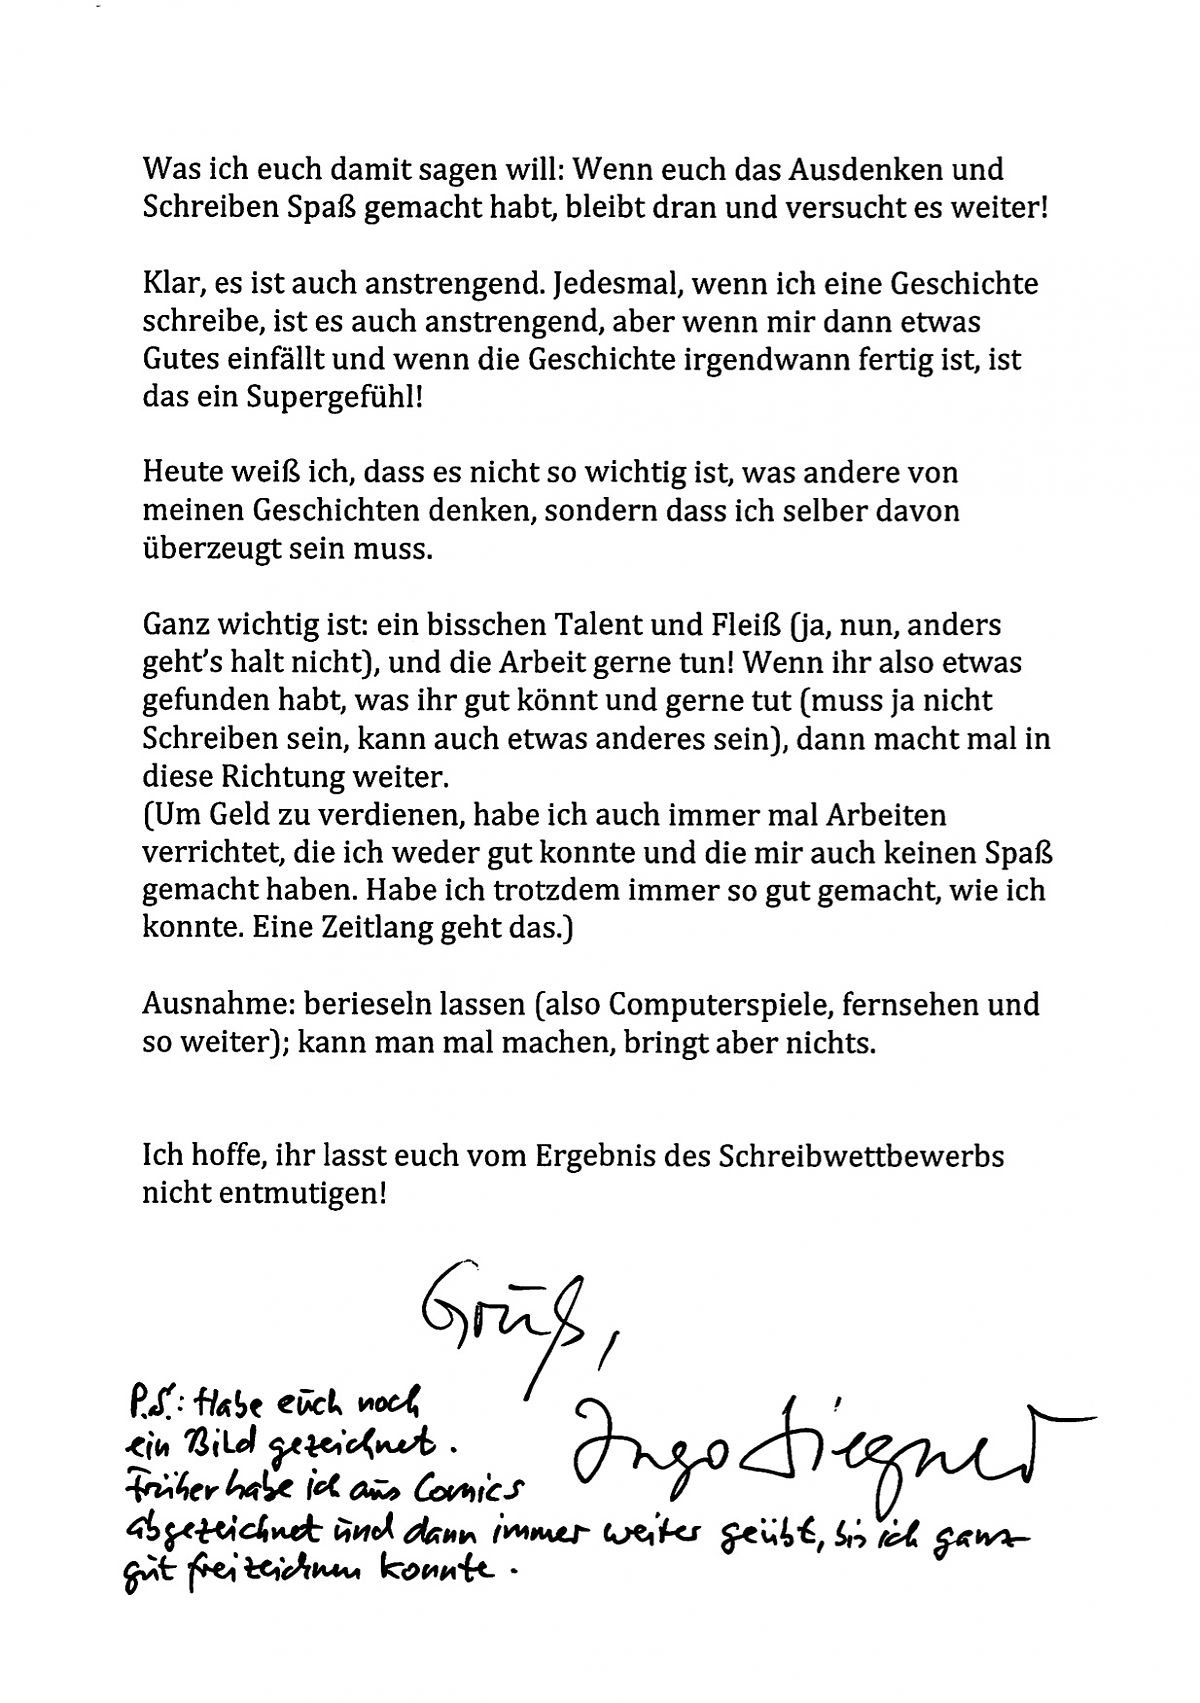 Was ich euch damit sagen will: Wenn euch das Ausdenken und
Schreiben Spaß gemacht habt, bleibt dran und versucht es weiter!
Klar, es ist auch anstrengend. Jedesmal, wenn ich eine Geschichte
schreibe, ist es auch anstrengend, aber wenn mir dann etwas
Gutes einfällt und wenn die Geschichte irgendwann fertig ist, ist
das ein Supergefühl!
Heute weiß ich, dass es nicht so wichtig ist, was andere von
meinen Geschichten denken, sondern dass ich selber davon
überzeugt sein muss.
Ganz wichtig ist: ein bisschen Talent und Fleiß (ja, nun, anders
geht's halt nicht), und die Arbeit gerne tun! Wenn ihr also etwas
gefunden habt, was ihr gut könnt und gerne tut (muss ja nicht
Schreiben sein, kann auch etwas anderes sein), dann macht mal in
diese Richtung weiter.
(Um Geld zu verdienen, habe ich auch immer mal Arbeiten
verrichtet, die ich weder gut konnte und die mir auch keinen Spaß
gemacht haben. Habe ich trotzdem immer so gut gemacht, wie ich
konnte. Eine Zeitlang geht das.)
Ausnahme: berieseln lassen (also Computerspiele, fernsehen und
so weiter); kann man mal machen, bringt aber nichts.
Ich hoffe, ihr lasst euch vom Ergebnis des Schreibwettbewerbs
nicht entmutigen!
Gruß,
Ingo Siegner
P.S.: Habe euch noch
ein Bild gezeichnet.
Früher habe ich aus Comics
abgezeichnet und dann immer weiter geübt, bis ich ganz
gut freizeichnen konnte.